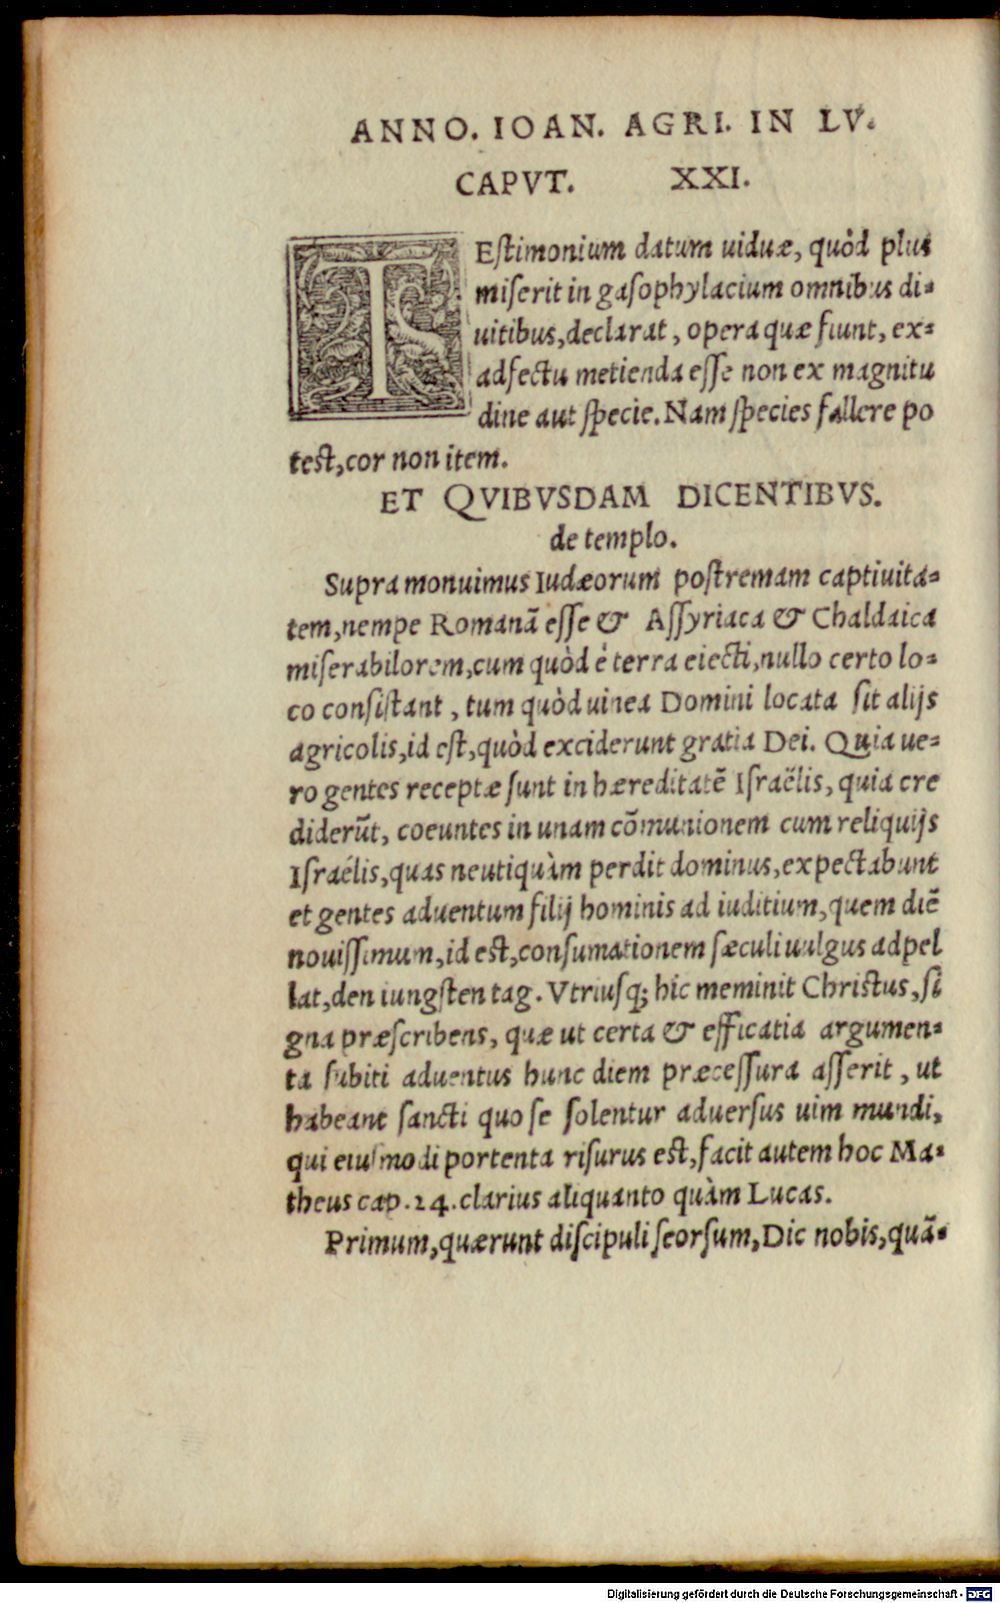 ANNO. IOAN. AGRI. IN LV.
CAPVT. XXI.
TEstimonium datum uiduæ, quòd plus
miserit in gasophylacium omnibus di=
uitibus, declarat, opera quæ fiunt, ex=
adfectu metienda esse non ex magnitu
dine aut specie. Nam species fallere po
test, cor non item.
ET QVIBVSDAM DICENTIBVS.
de templo.
Supra monuimus Iudæorum postremam captiuita=
tem, nempe Romanã esse & Assyriaca & Chaldaica
miserabilorem, cum quòd è terra eiecti, nullo certo lo=
co consistant, tum quòd uinea Domini locata sit alijs
agricolis, id est, quòd exciderunt gratia Dei. Quia ue=
ro gentes receptæ sunt in hæreditatẽ Israëlis, quia cre
diderũt, coeuntes in unam cõmunionem cum reliquijs
Israélis, quas neutiquàm perdit dominus, expectabunt
et gentes aduentum filij hominis ad iuditium, quem diẽ
nouissimum, id est, consumationem sæculi uulgus adpel
lat, den iungsten tag. Vtriusq; hic meminit Christus, si
gna præscribens, quæ ut certa & efficatia argumen=
ta subiti aduentus hunc diem præcessura asserit, ut
habeant sancti quo se solentur aduersus uim mundi,
qui eiusmodi portenta risurus est, facit autem hoc Ma=
theus cap. 24. clarius aliquanto quàm Lucas.
Primum, quærunt discipuli seorsum, Dic nobis, quã=
Digitalisierung gefördert durch die Deutsche Forschungsgemeinschaft - DFG